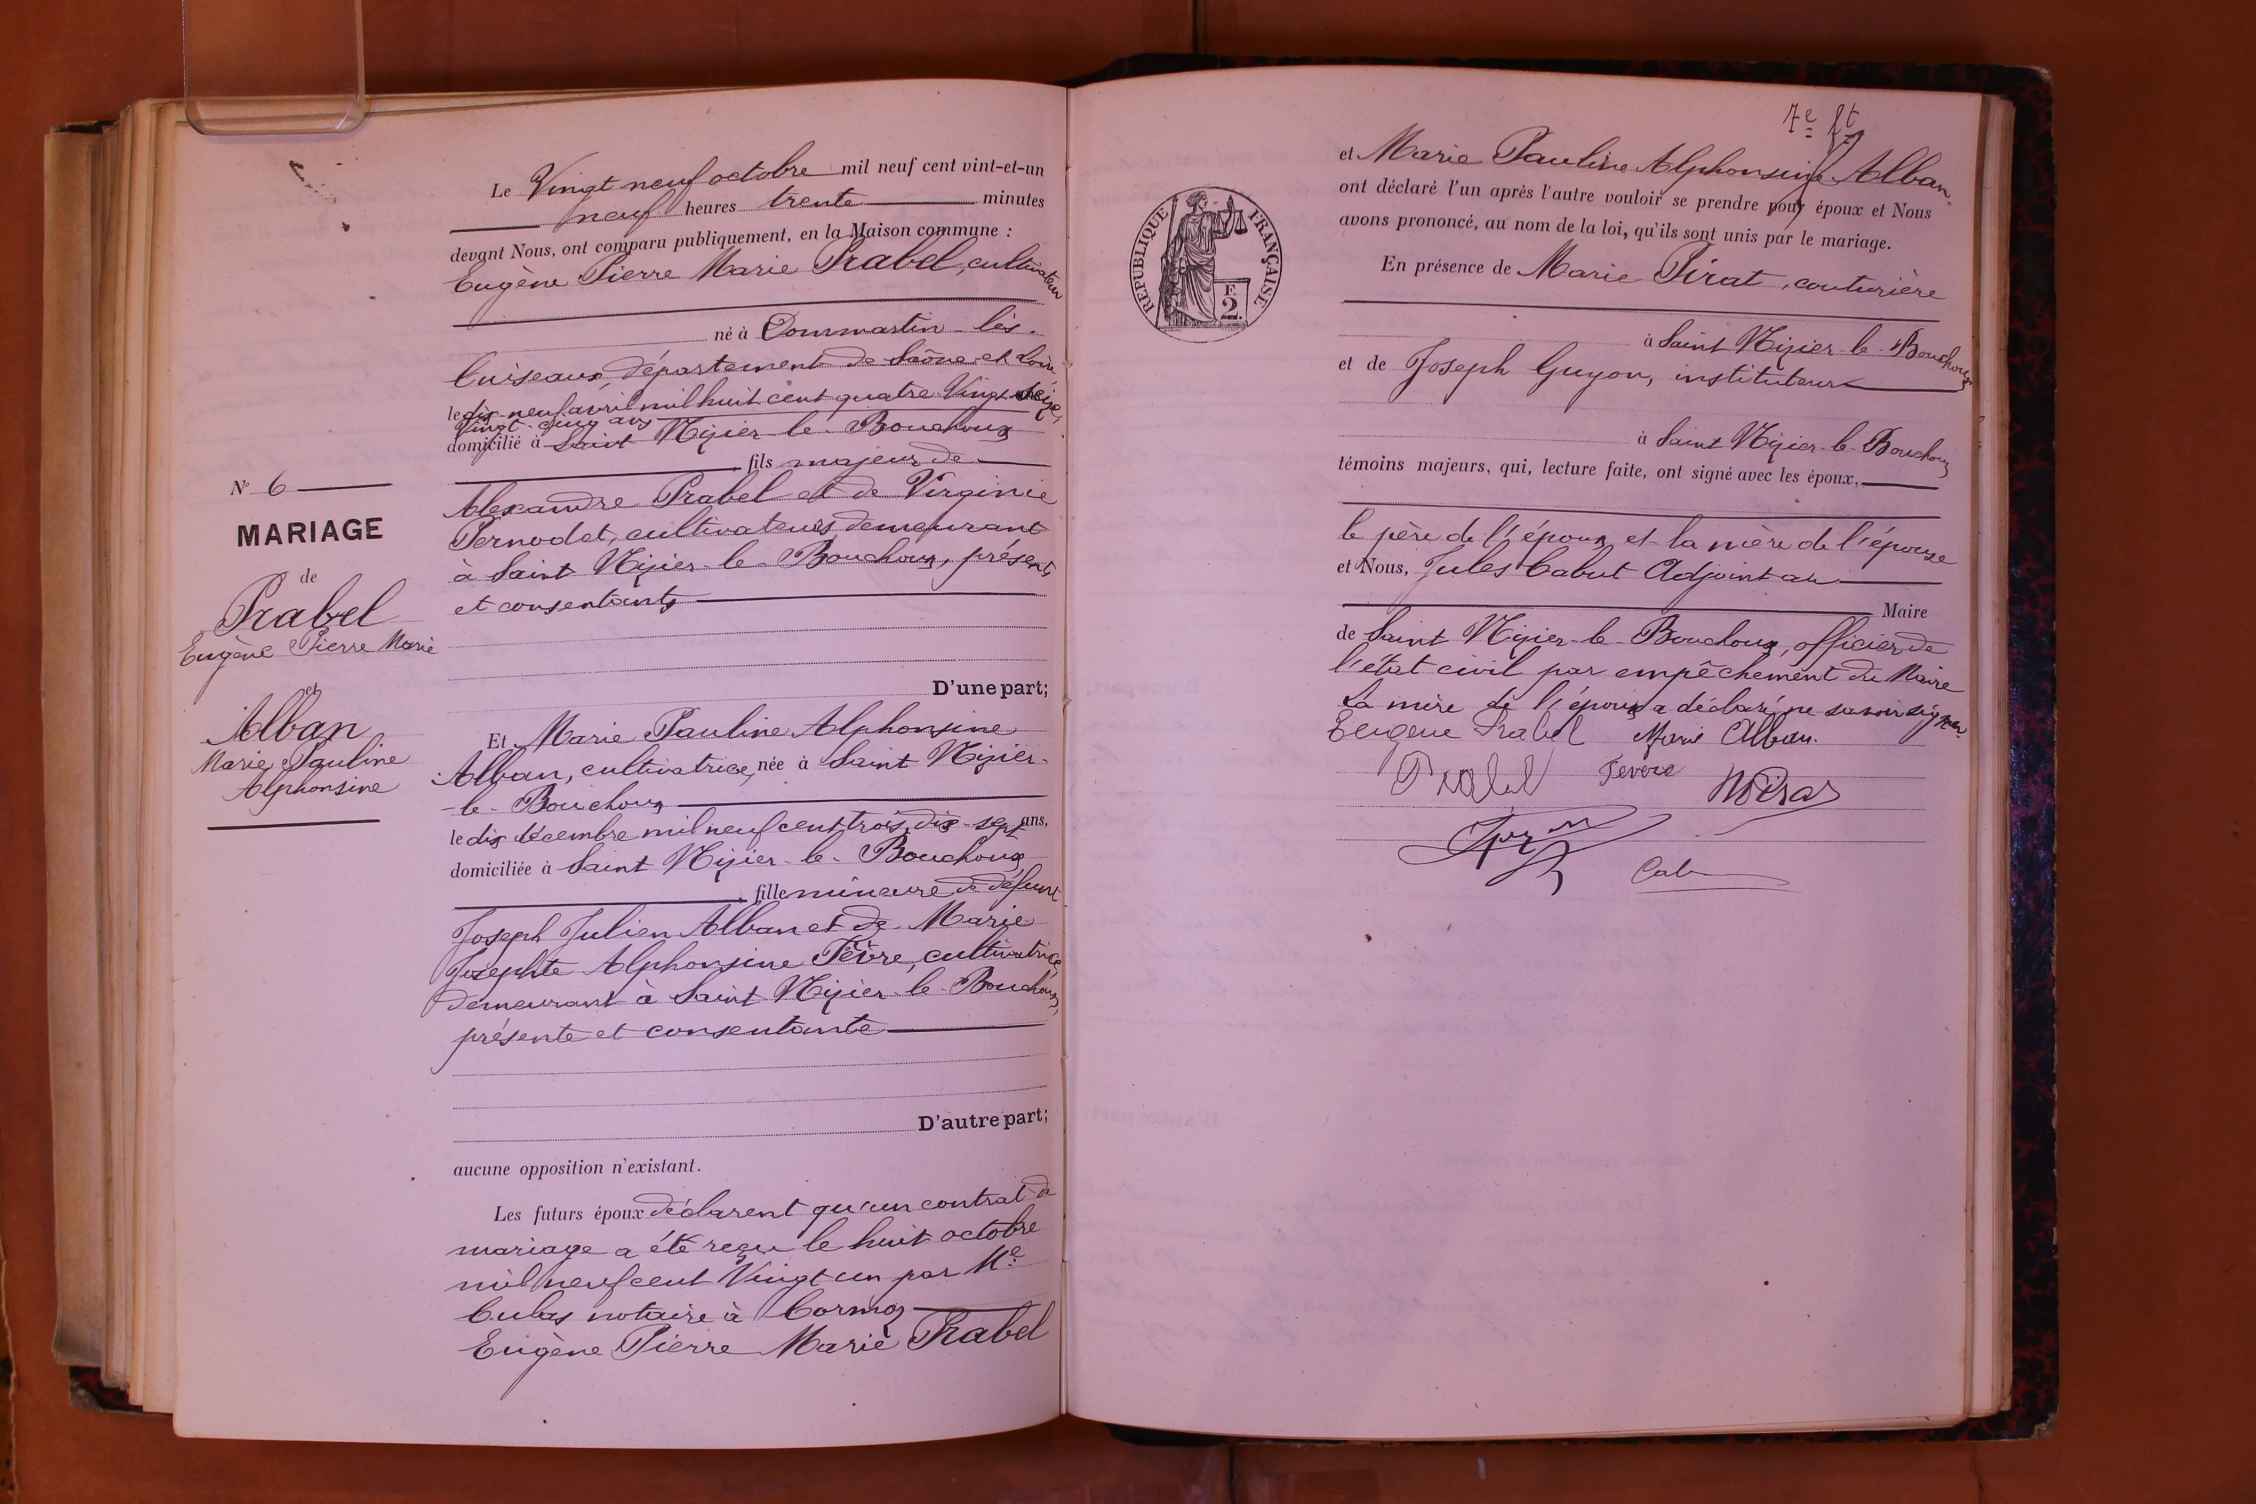 Le Vingt neuf octobre mil neuf cent vint-et-un
neuf heures trente minutes
devant Nous, ont comparu publiquement, en la Maison commune :
Eugène Pierre Marie Prabel, cultivateur
né à Dommartin-lès-
Cuiseaux, département de Saône-et-Loire
le dix-neuf avril mil huit cent quatre Vingt seize,
Vingt-cinq ans
domicilié à Saint Nizier-le-Bouchoux
fils majeur de
Alexandre Prabel et de Virginie
Pernodet, cultivateurs, demeurant
à Saint Nizier-le-Bouchoux, présents
et consentants
D'une part;
Nº 6
MARIAGE
de
Prabel
Eugène Pierre Marie
et
Alban
Marie Pauline
Alphonsine
Et Marie Pauline Alphonsine
Alban, cultivatrice, née à Saint Nizier-
-le-Bouchoux
le dix décembre mil neuf cent trois, dix-sept ans,
domiciliée à Saint Nizier-le-Bouchoux
fille mineure de défunt
Joseph Julien Alban et de Marie
Josephte Alphonsine Fèvre, cultivatrice,
demeurant à Saint Nizier-le-Bouchoux,
présente et consentante
D'autre part;
aucune opposition n'existant.
Les futurs époux déclarent qu'un contrat de
mariage a été reçu le huit octobre
mil neuf cent Vingt un par Me
Cubas notaire à Cormoz
Eugène Pierre Marie Prabel
7e ft
et Marie Pauline Alphonsine Alban
ont déclaré l'un après l'autre vouloir se prendre pour époux et Nous
avons prononcé, au nom de la loi, qu'ils sont unis par le mariage.
REPUBLIQUE FRANÇAISE
F.
2
En présence de Marie Pirat, couturière
à Saint Nizier-le-Bouchoux
et de Joseph Guyon, instituteur
à Saint Nizier-le-Bouchoux
témoins majeurs, qui, lecture faite, ont signé avec les époux,
le père de l'époux et la mère de l'épouse
et Nous, Jules Cabut Adjoint au
Maire
de Saint Nizier-le-Bouchoux, officier de
l'état civil par empêchement du Maire
La mère de l'époux a déclaré ne savoir signer
Eugene Prabel Marie Alban.
Prabel Fevre M Pirat
Cab